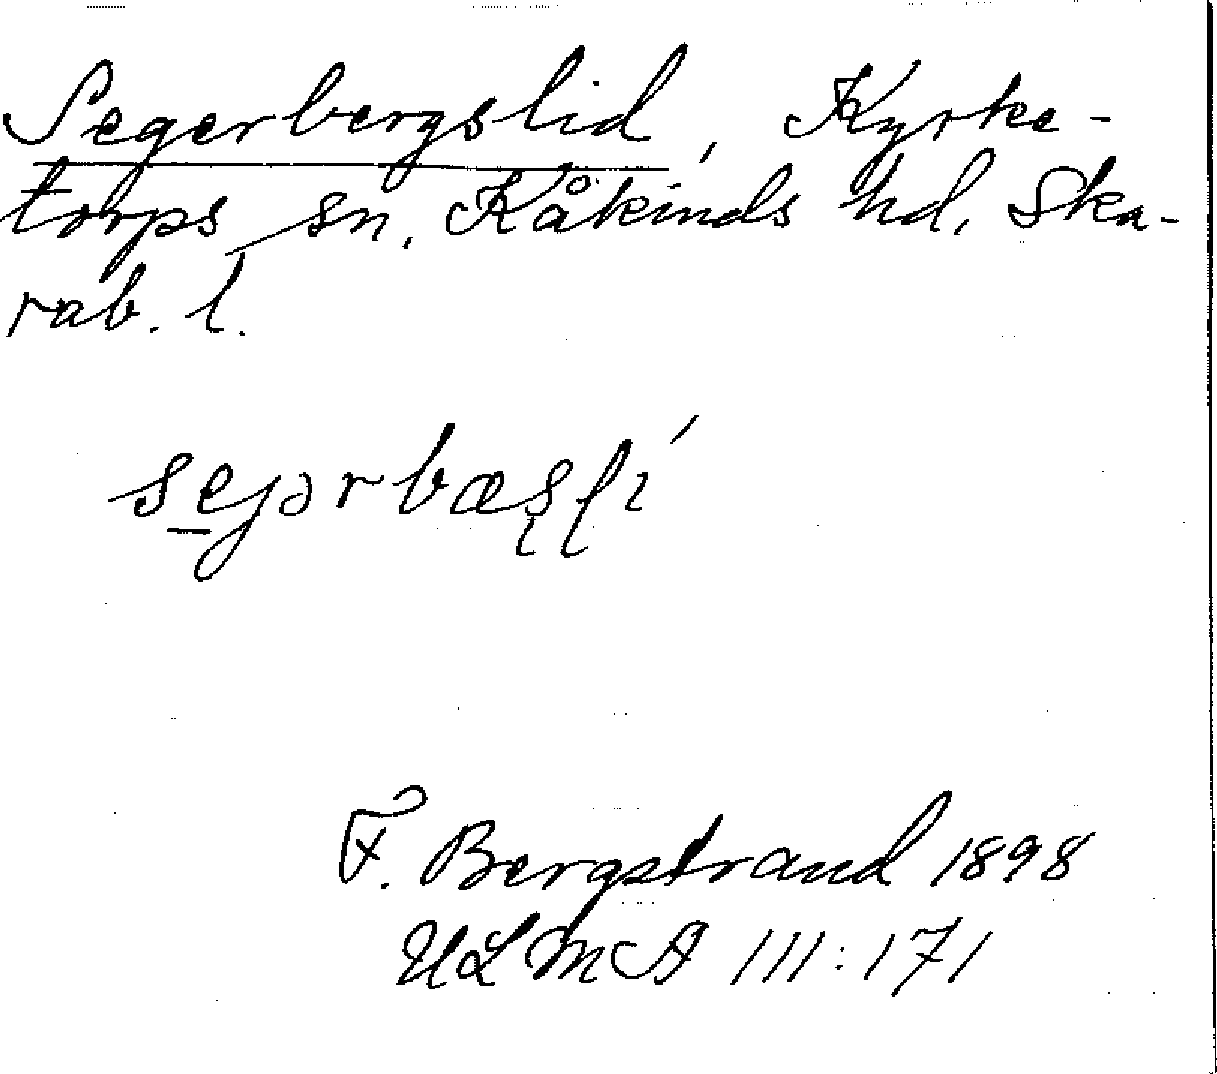 Segerbergslid, Kyrke-
torps sn, Kåkinds hd, Ska-
rab. l.
sejərbæʂɭí
F. Bergstrand 1898
ULMA 111:171